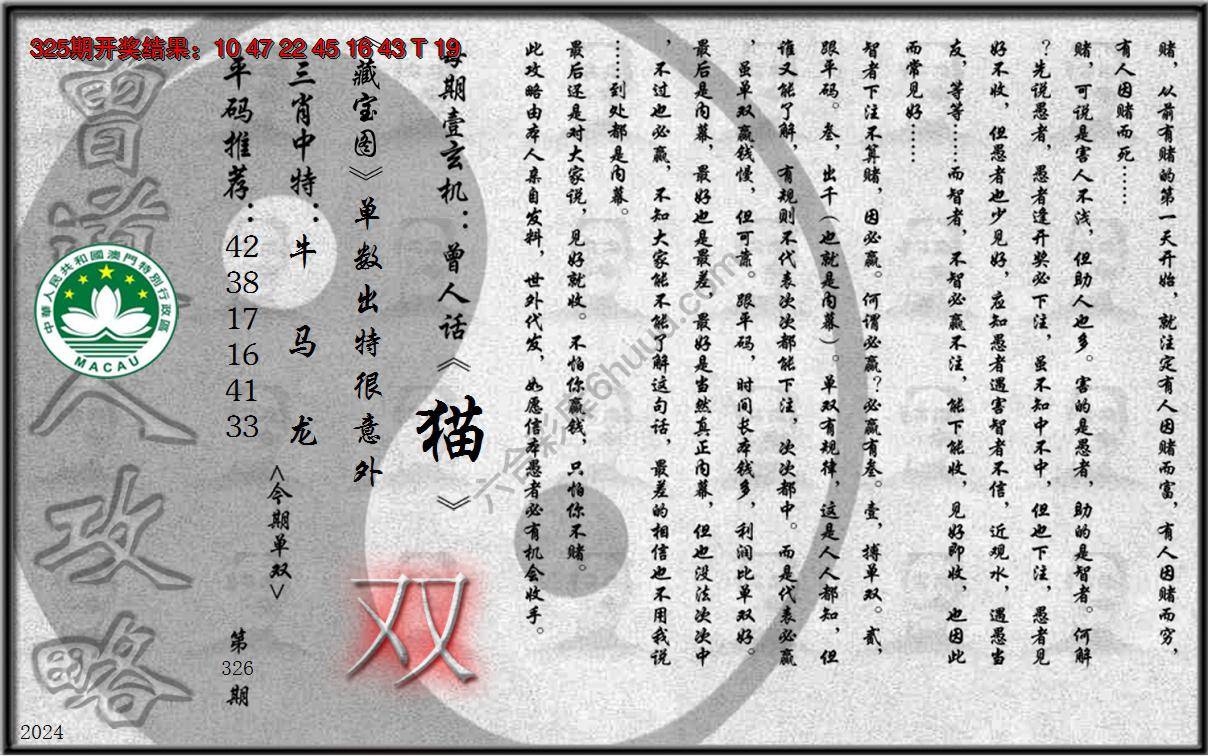 325期开奖结果：10 47 22 45 16 43 T 19
赌，从前有赌的第一天开始，就注定有人因赌而富，有人因赌而穷，
有人因赌而死……
赌，可说是害人不浅，但助人也多。害的是愚者，助的是智者。何解
？先说愚者，愚者逢开奖必下注，虽不知中不中，但也下注，愚者见
好不收，但愚者也少见好，应知愚者遇害智者不信，近观水，遇愚当
友，等等……而智者，不智必赢不注，能下能收，见好即收，也因此
而常见好……
智者下注不算赌，因必赢。何谓必赢？必赢有叁。壹，搏单双。贰，
跟平码。叁，出千（也就是内幕）。单双有规律，这是人人都知，但
谁又能了解，有规则不代表次次都能下注，次次都中。而是代表必赢
，虽单双赢钱慢，但可靠。跟平码，时间长本钱多，利润比单双好。
最后是内幕，最好也是最差，最好是当然真正内幕，但也没法次次中
，不过也必赢，不知大家能不能了解这句话，最差的相信也不用我说
……到处都是内幕。
最后还是对大家说，见好就收。不怕你赢钱，只怕你不赌。
此攻略由本人亲自发料，世外代发，如愿信本愚者必有机会收手。
每期壹玄机：曾人话《猫》
《藏宝图》单数出特很意外
双
三肖中特：牛 马 龙
<今期单双>
平码推荐：
42
38
17
16
41
33
第
326
期
曾道人攻略
中華人民共和國澳門特別行政區
MACAU
六合彩库6huuu.com
2024